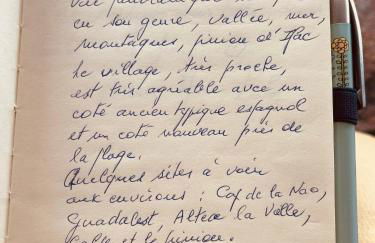 Vue panoramique
en son genre, vallée, mer,
montagnes, pinion d'Ifac
Le village, très proche,
est très agréable avec un
coté ancien typique espagnol
et un coté nouveau près de
la plage.
Quelques sites à voir
aux environs : Cap de la Nao,
Guadalest, Altea la Vella,
Calpe et le pinion.